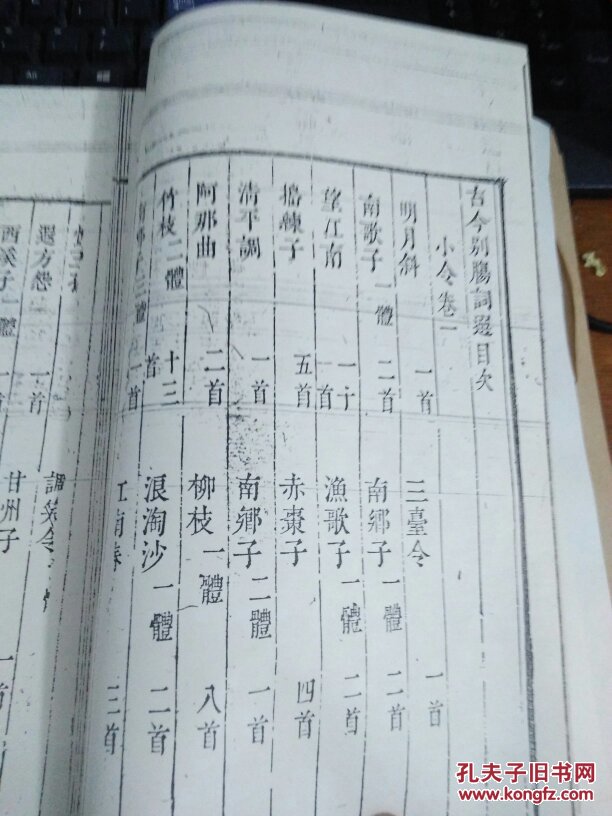 古今別膓詞選目次
小令卷一
明月斜 一首 三臺令 一首
南歌子一體 二首 南鄉子一體 二首
望江南 十一首 漁歌子一體 二首
搗練子 五首 赤棗子 四首
清平調 一首 南鄉子二體 一首
阿那曲 二首 柳枝一體 八首
竹枝二體 十三首 浪淘沙一體 二首
南鄉子三體 一首 江南春 三首
遐方怨 一首 調笑令
西溪子一體 一首 甘州子 一首
孔夫子旧书网
www.kongfz.com